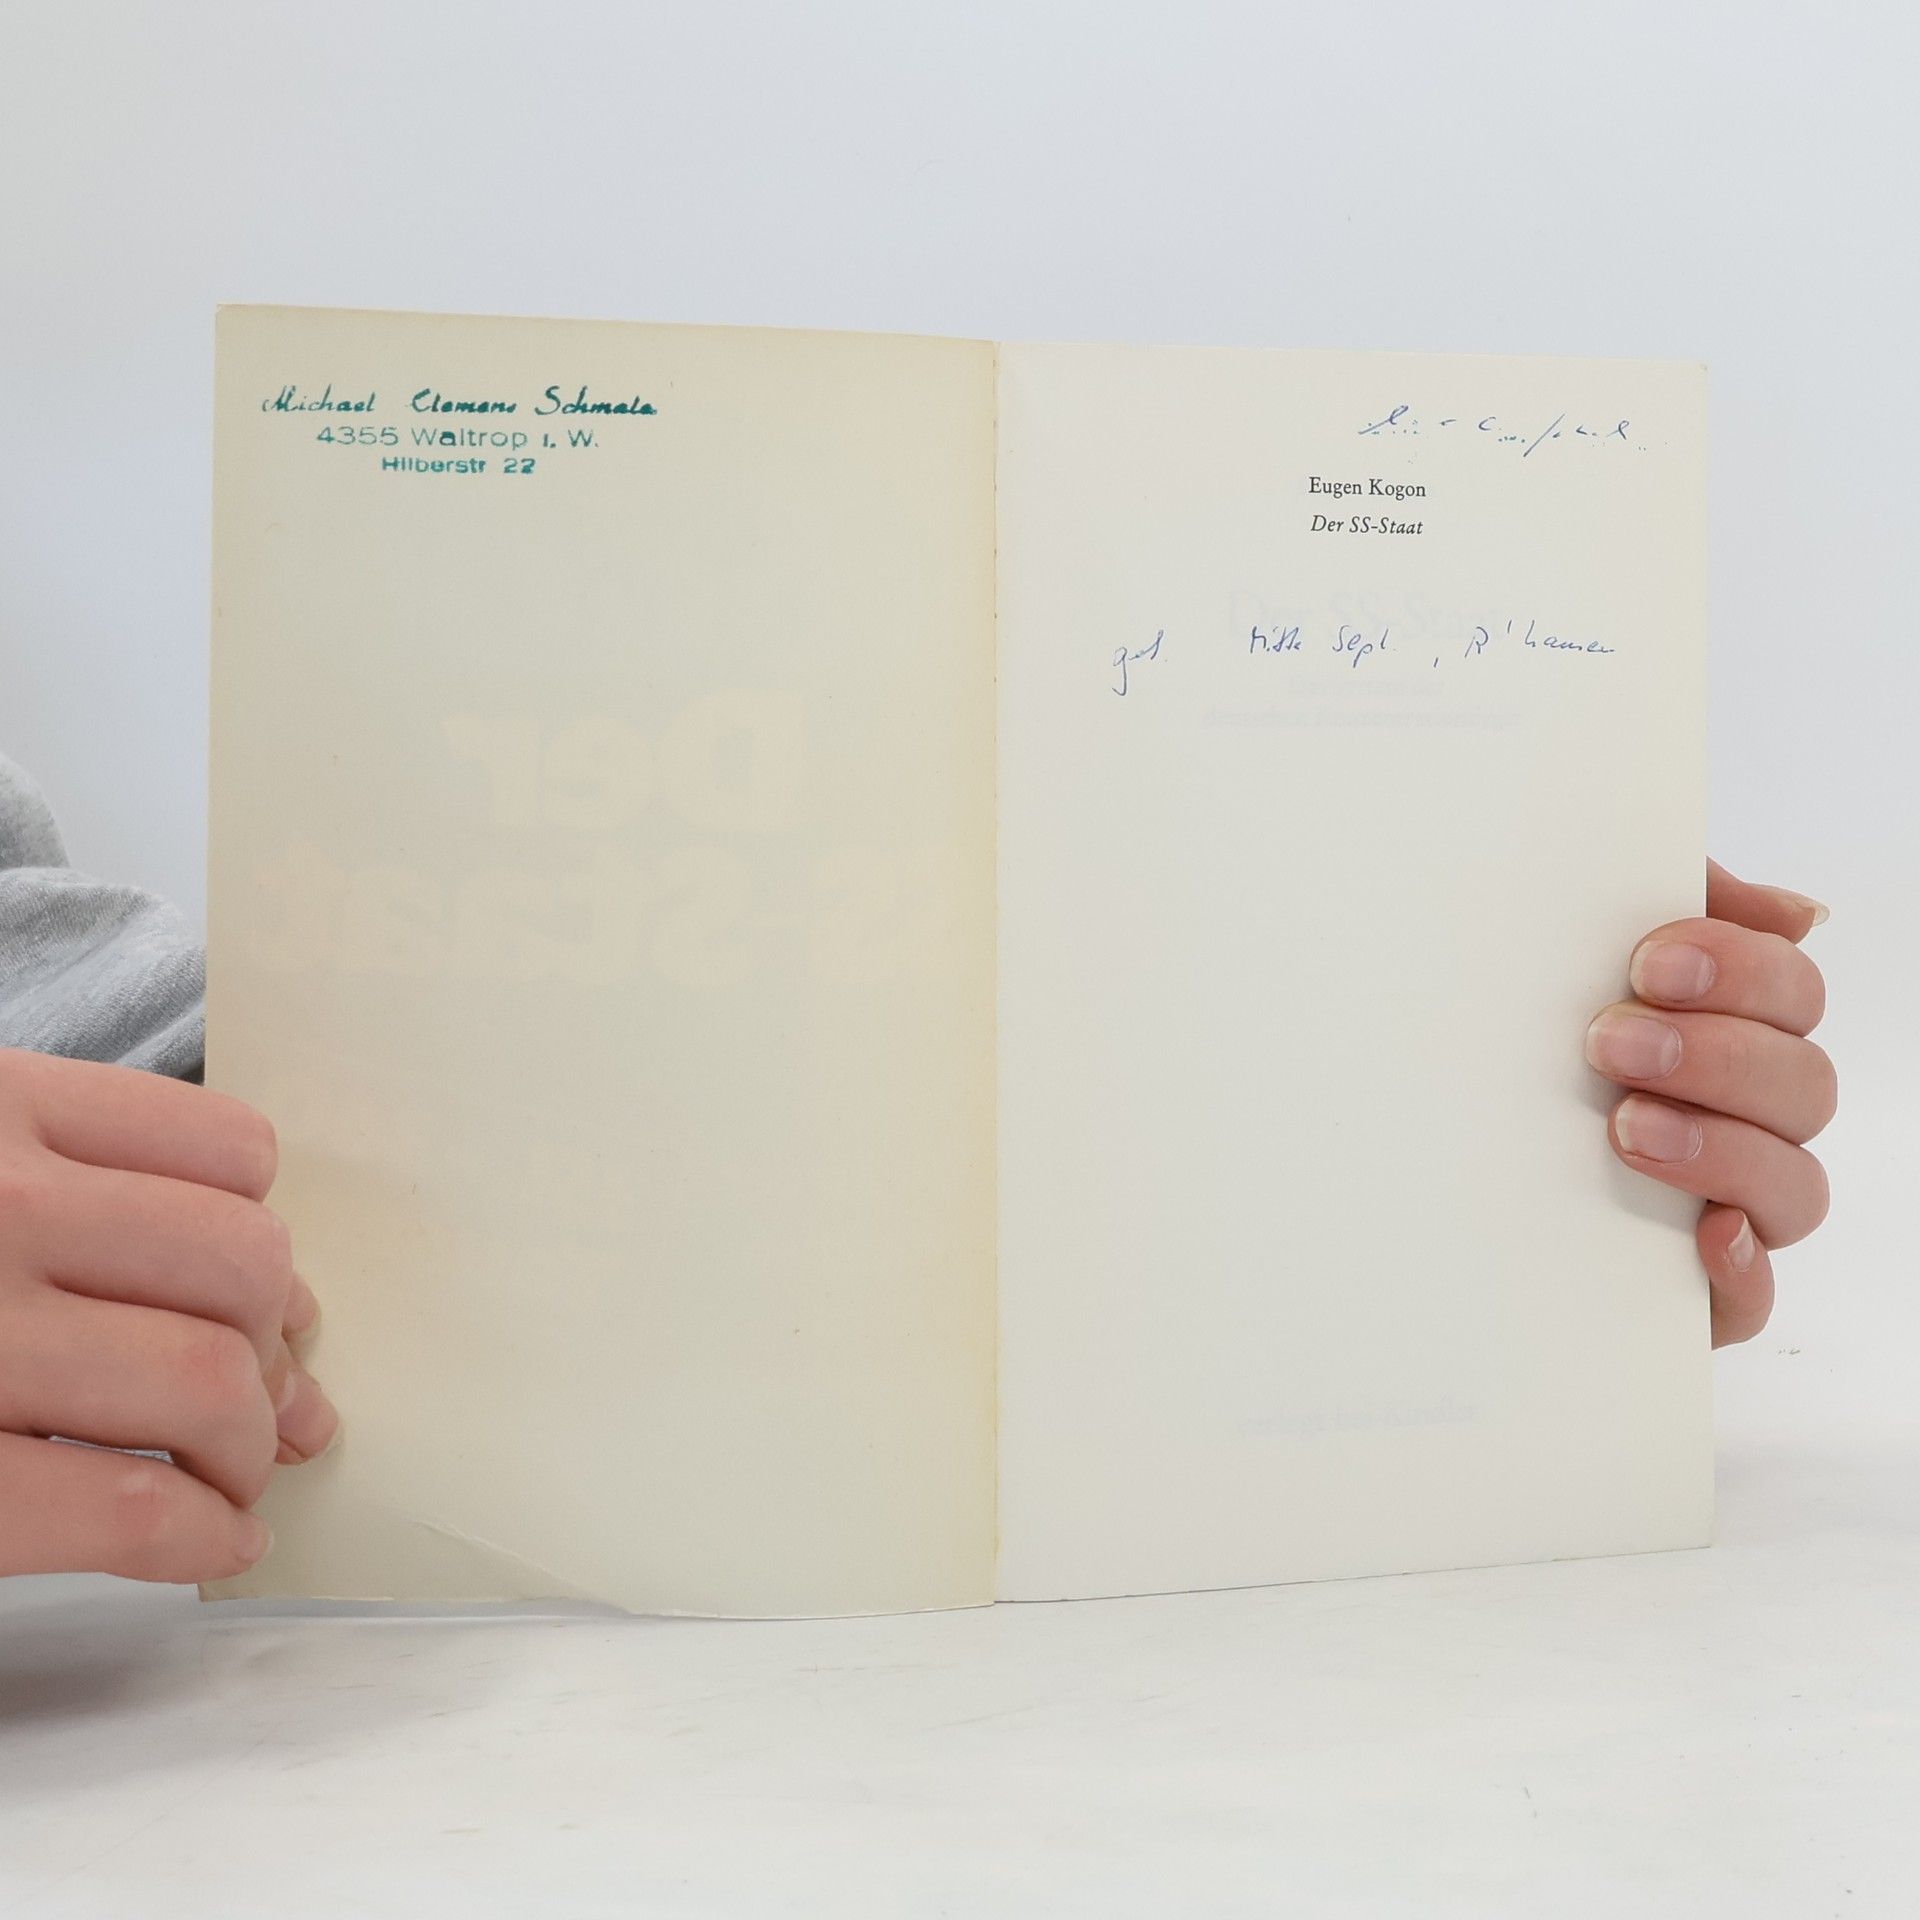 Michael Clemens Schmale
4355 Waltrop i. W.
Hilberstr 22
Eugen Kogon
Der SS-Staat
Mitte Sept., R'hausen